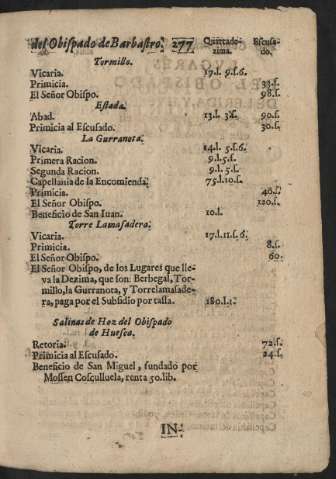 del Obispado de Barbastro. 277 Quartade- Escusa-
zima. do.
Tormillo.
Vicaria. 17.l. 9.s.6.
Primicia. 33.s.
El Señor Obispo. 98.s.
Estada.
Abad. 13.l. 3s. 90.s.
Primicia al Escusado. 30.s.
La Gurranota.
Vicaria. 14.l. 5.s.6.
Primera Racion. 9.l.5.s.
Segunda Racion. 9.l.5.s.
Capellania de la Encomienda. 75.l.10.s.
Primicia. 40.s.
El Señor Obispo. 120.s.
Beneficio de San Iuan. 10.l.
Torre Lamasadera.
Vicaria. 17.l.11.s.6.
Primicia. 8.s.
El Señor Obispo. 60.
El Señor Obispo, de los Lugares que lle-
va la Dezima, que son: Berbegal, Tor-
millo, la Gurranota, y Torrelamasade-
ra, paga por el Subsidio por tassa. 180.l.1.
Salinas de Hoz del Obispado
de Huesca.
Retoria. 72.s.
Primicia al Escusado. 24.s.
Beneficio de San Miguel, fundado por
Mossen Cosculluela, renta 50.lib.
IN-